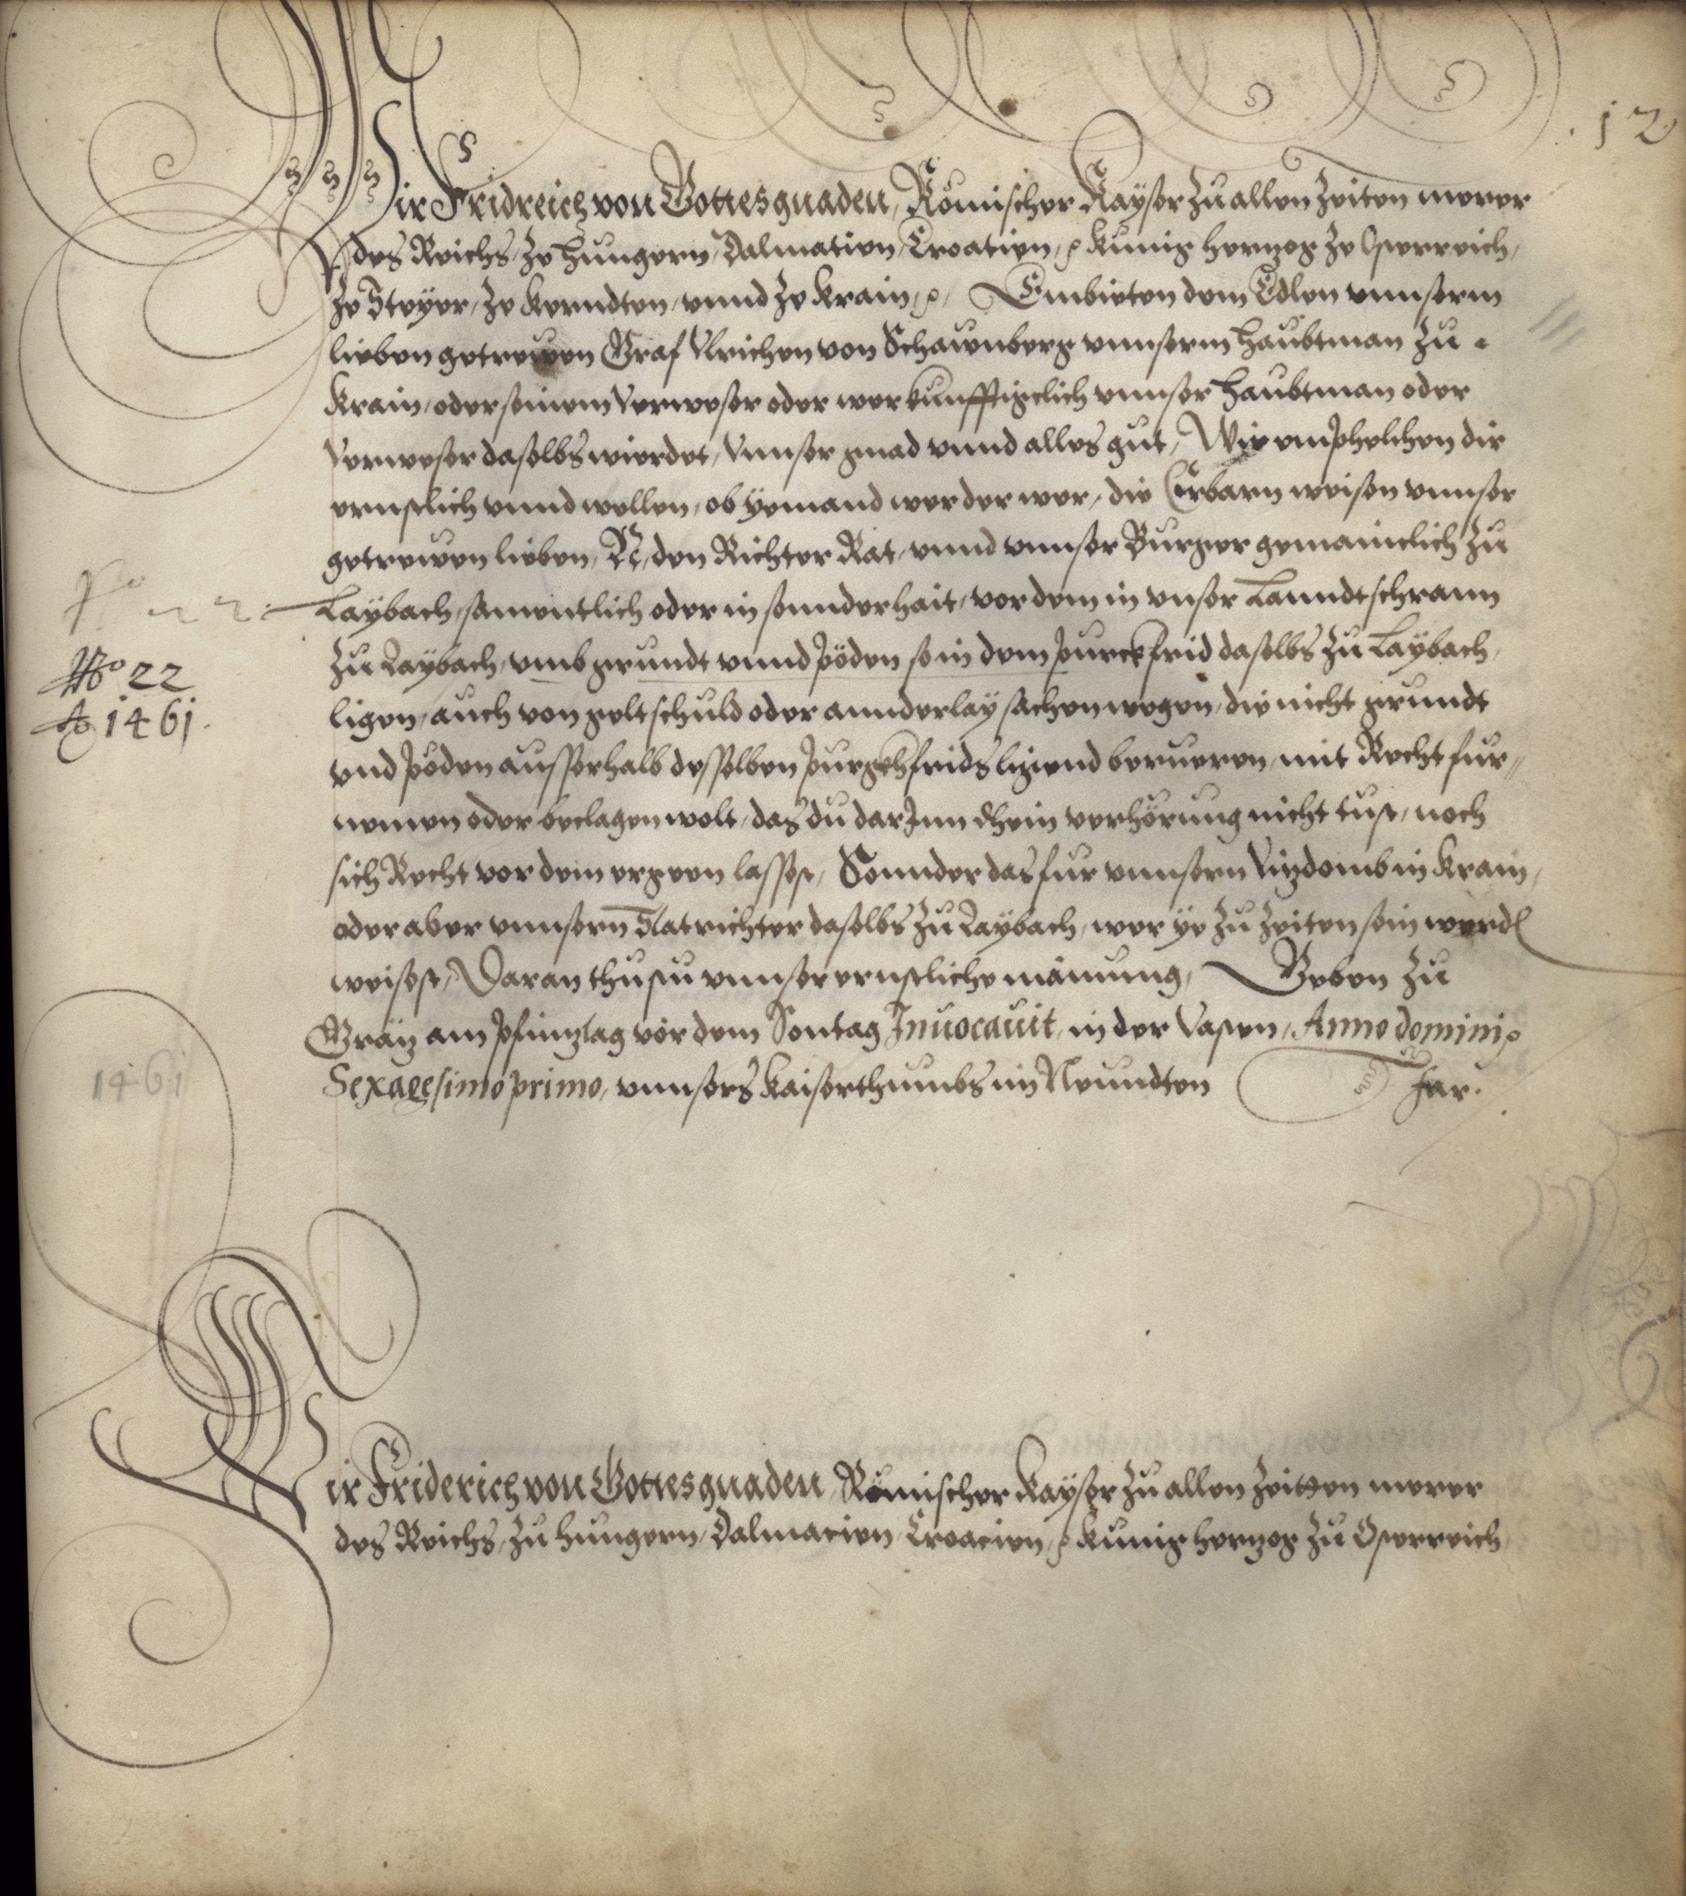 12
Wir Fridreich von Gottes gnaden, Römischer Kayser zu allen Zeiten merer
des Reichs, ze Hungern, Dalmatien, Croatien, ⁊ Kunig Hertzog ze Osterreich,
ze Steyer, ze Kerndten, vnnd ze Krain, ⁊, Embieten dem Edlen vnnserm
lieben getrewen Graf Vlrichen von Schawnberg vnnserm Haubtman zu
Krain, oder seinem Verweser oder wer kunfftigclich vnnser Haubtman oder
Verweser daselbs wierdet, Vnnser gnad vnnd alles gut, Wir emphelchen dir
ernstlich vnnd wellen, ob yemand wer der wer, die Erbarn weisen vnnser
getrewen lieben, N, den Richter Rat, vnnd vnnser Burger gemainclich zu
Laybach, samentlich oder in sonnderhait, vor dem in vnser Lanndtschrann
No 22
zu Laybach, vmb grundt vnnd pöden so in dem purckfrid daselbs zu Laybach,
Ao 1461.
ligen, auch von geltschuld oder annderlay sachen wegen, die nicht grundt
vnd pöden ausserhalb desselben purgkhfrids ligend berueren, mit Recht fur=
nemen oder beclagen wolt, das du darJnn dhein verhörung nicht tust, noch
sich Recht vor dem ergeen lassest, Sonnder das fur vnnsern Vitzdomb in Krain,
oder aber vnnsern Statrichter daselbs zu Laybach, wer ye zu Zeiten sein werd
weisest, Daran thustu vnnser ernstliche mainung, Geben zu
Grätz am phintztag vor dem Sontag Inuocauit, in der Vasten, Anno domini ⁊
1461
Sexagesimo primo, vnnsers Kaiserthumbs im Neundten Jar.
Wir Friderich von Gottes gnaden, Römischer Kayser zu allen Zeitten merer
des Reichs, zu Hungern, Dalmacien, Croacien, ⁊ Kunig Hertzog zu Osterreich,